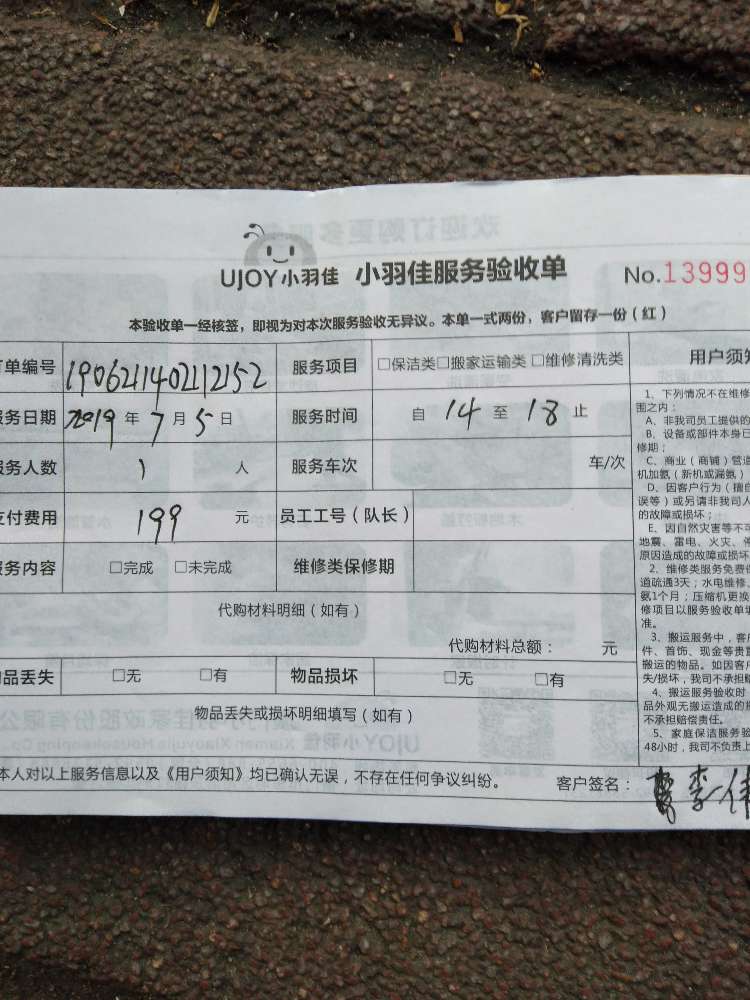 UJOY小羽佳 小羽佳服务验收单 No.13999
本验收单一经核签，即视为对本次服务验收无异议。本单一式两份，客户留存一份（红）
订单编号 1906211402112152 服务项目 □保洁类□搬家运输类□维修清洗类 用户须知
服务日期 2019年7月5日 服务时间 自14至18止
服务人数 1 人 服务车次 车/次
支付费用 199 元 员工工号（队长）
服务内容 □完成 □未完成 维修类保修期
代购材料明细（如有）
代购材料总额： 元
物品丢失 □无 □有 物品损坏 □无 □有
物品丢失或损坏明细填写（如有）
本人对以上服务信息以及《用户须知》均已确认无误，不存在任何争议纠纷。 客户签名： 李伟
1、下列情况不在维修
围之内：
A、非我司员工提供的
B、设备或部件本身已
修期；
C、商业（商铺）管道
机加氨（新机或漏氨）
D、因客户行为（擅自
误等）或另请非我司人
的故障或损坏；
E、因自然灾害等不
地震、雷电、火灾、停
原因造成的故障或损坏
2、维修类服务免费保
道疏通3天；水电维修、
氨1个月；压缩机更换
修项目以服务验收单填
准。
3、搬运服务中，客户
件、首饰、现金等贵重
搬运的物品。如因客户
失/损坏，我司不承担赔
4、搬运服务验收时
品外观无搬运造成的损
不承担赔偿责任。
5、家庭保洁服务验
48小时，我司不负责上